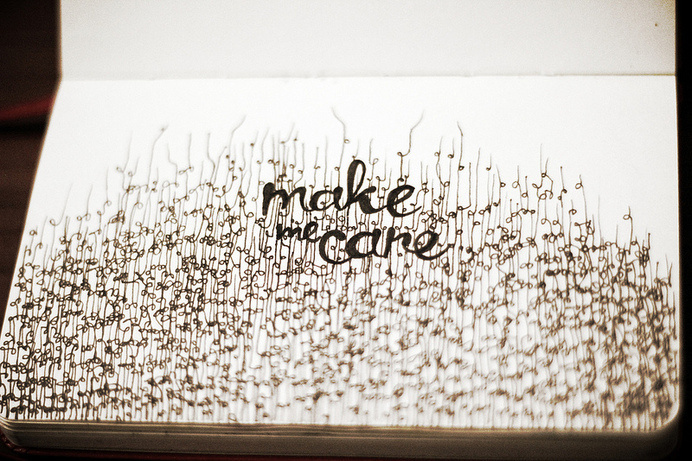 make
me care